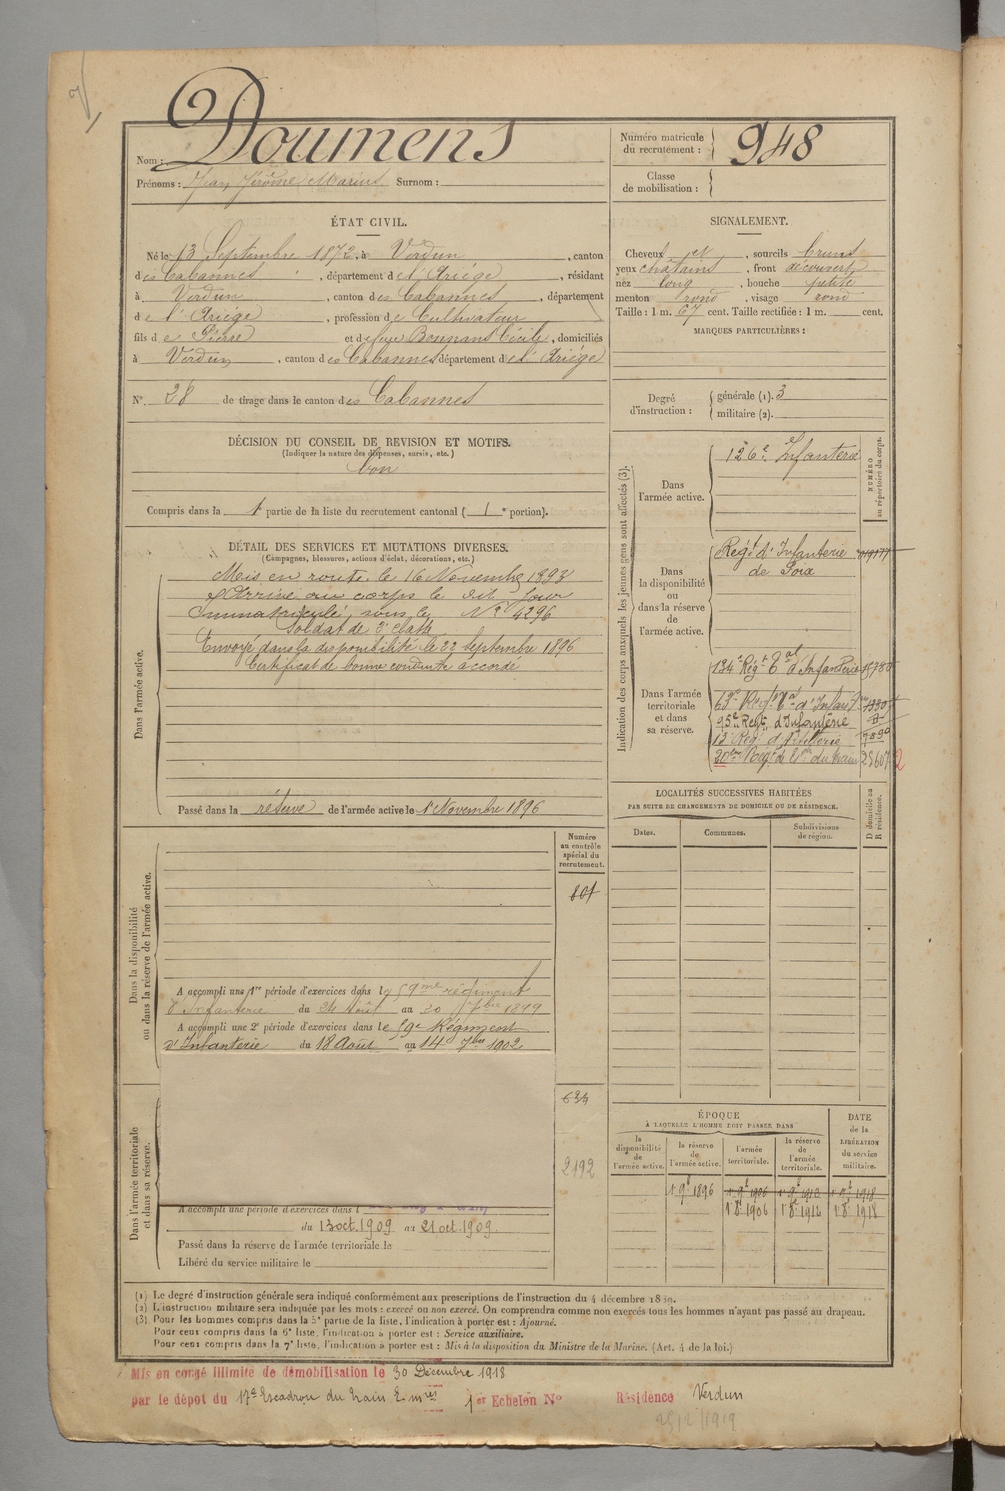 Nom : Doumens
Prénoms : Jean Jérôme Marius Surnom :
Numéro matricule du recrutement : 948
Classe de mobilisation :
ÉTAT CIVIL.
Né le 13 Septembre 1872, à Verdun, canton
des Cabannes, département de l'Ariège, résidant
à Verdun, canton des Cabannes, département
de l'Ariège, profession de Cultivateur
fils de Pierre et de feue Bonnans Cécile, domiciliés
à Verdun, canton des Cabannes département de l'Ariège
N° 28 de tirage dans le canton des Cabannes
SIGNALEMENT.
Cheveux et, sourcils bruns
yeux chatains, front découvert
nez long, bouche petite
menton rond, visage rond
Taille : 1 m. 67 cent. Taille rectifiée : 1 m. cent.
MARQUES PARTICULIÈRES :
Degré d'instruction : générale (1). 3
militaire (2).
DÉCISION DU CONSEIL DE REVISION ET MOTIFS.
(Indiquer la nature des dispenses, sursis, etc.)
bon
Compris dans la 1e partie de la liste du recrutement cantonal ( 1e portion).
DÉTAIL DES SERVICES ET MUTATIONS DIVERSES.
(Campagnes, blessures, actions d'éclat, décorations, etc.)
Dans l'armée active.
Mis en route le 16 Novembre 1893
Arrivé au corps le dit jour
Immatriculé sous le N° 4296
Soldat de 2e classe
Envoyé dans la disponibilité le 22 Septembre 1896
Certificat de bonne conduite accordé
Passé dans la réserve de l'armée active le 1er Novembre 1896
Indication des corps auxquels les jeunes gens sont affectés (3).
NUMÉRO au répertoire du corps.
Dans l'armée active.
126e Infanterie
Dans la disponibilité ou dans la réserve de l'armée active.
Regt d'Infanterie
de Foix
Dans l'armée territoriale et dans sa réserve.
134e Régt Tal d'Infanterie
95e Regt d'Infanterie
LOCALITÉS SUCCESSIVES HABITÉES
PAR SUITE DE CHANGEMENTS DE DOMICILE OU DE RÉSIDENCE.
Dates. Communes. Subdivisions de région. D domicile ou R résidence.
Numéro au contrôle spécial du recrutement.
801
Dans la disponibilité ou dans la réserve de l'armée active.
A accompli une 1re période d'exercices dans le 59me régiment
d'Infanterie du 24 Août au 20 7bre 1899
A accompli une 2e période d'exercices dans le 59e Régiment
d'Infanterie du 18 Août au 14 7bre 1902
Dans l'armée territoriale et dans sa réserve.
2192
A accompli une période d'exercices dans l
du 13 oct. 1909 au 21 oct. 1909.
Passé dans la réserve de l'armée territoriale le
Libéré du service militaire le
ÉPOQUE
À LAQUELLE L'HOMME DOIT PASSER DANS
la disponibilité de l'armée active. la réserve de l'armée active. l'armée territoriale. la réserve de l'armée territoriale. DATE de la LIBÉRATION du service militaire.
1 9e 1896 1 9e 1906 1 9e 1912 1 9e 1918
1 8e 1906 1 8e 1912 1 8e 1918
(1) Le degré d'instruction générale sera indiqué conformément aux prescriptions de l'instruction du 4 décembre 1889.
(2) L'instruction militaire sera indiquée par les mots : exercé ou non exercé. On comprendra comme non exercés tous les hommes n'ayant pas passé au drapeau.
(3) Pour les hommes compris dans la 5e partie de la liste, l'indication à porter est : Ajourné.
Pour ceux compris dans la 6e liste, l'indication à porter est : Service auxiliaire.
Pour ceux compris dans la 7e liste, l'indication à porter est : Mis à la disposition du Ministre de la Marine. (Art. 4 de la loi.)
Mis en congé illimité de démobilisation le 30 Décembre 1918
par le dépôt du 17e Escadron du Train E mres 1er Echelon N° Résidence Verdun